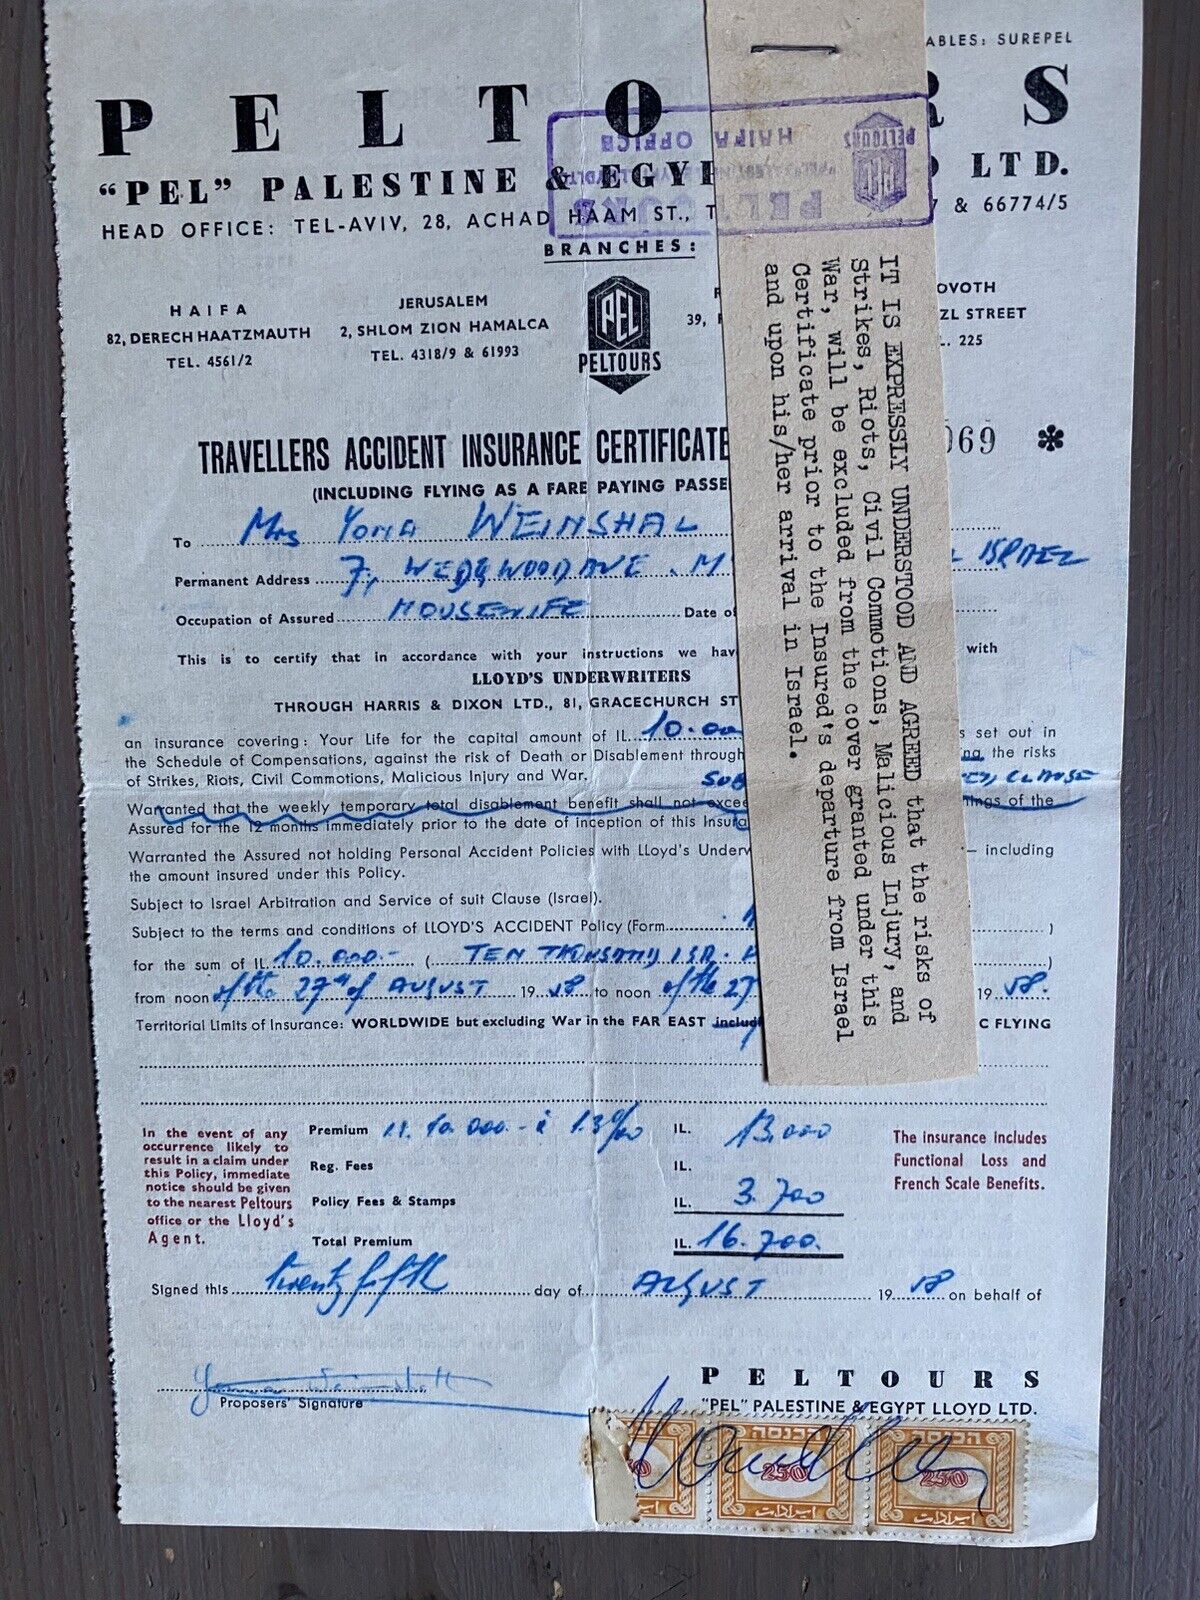 ABLES: SUREPEL
PELTO RS
"PEL" PALESTINE & EGYP LTD.
HEAD OFFICE: TEL-AVIV, 28, ACHAD HAAM ST., T & 66774/5
BRANCHES:
PELTOURS
HAIFA OFFICE
HAIFA
82, DERECH HAATZMAUTH
TEL. 4561/2
JERUSALEM
2, SHLOM ZION HAMALCA
TEL. 4318/9 & 61993
PEL
PELTOURS
39,
OVOTH
ZL STREET
L. 225
IT IS EXPRESSLY UNDERSTOOD AND AGREED that the risks of
Strikes, Riots, Civil Commotions, Malicious Injury, and
War, will be excluded from the cover granted under this
Certificate prior to the Insured's departure from Israel
and upon his/her arrival in Israel.
TRAVELLERS ACCIDENT INSURANCE CERTIFICATE 069 *
(INCLUDING FLYING AS A FARE PAYING PASSE
To Mrs YOMA WEINSHAL
Permanent Address 7, WEDGWOOD AVE. M ISRAEL
Occupation of Assured HOUSEWIFE Date of
This is to certify that in accordance with your instructions we hav with
LLOYD'S UNDERWRITERS
THROUGH HARRIS & DIXON LTD., 81, GRACECHURCH ST
an insurance covering: Your Life for the capital amount of IL. 10.000 s set out in
the Schedule of Compensations, against the risk of Death or Disablement through ng, the risks
of Strikes, Riots, Civil Commotions, Malicious Injury and War. SUB CLAUSE
Warranted that the weekly temporary total disablement benefit shall not excee nings of the
Assured for the 12 months immediately prior to the date of inception of this Insura
Warranted the Assured not holding Personal Accident Policies with LLoyd's Underw — including
the amount insured under this Policy.
Subject to Israel Arbitration and Service of suit Clause (Israel).
Subject to the terms and conditions of LLOYD'S ACCIDENT Policy (Form )
for the sum of IL. 10.000.- ( TEN THOUSAND ISR. )
from noon of the 27th of AUGUST 19 58 to noon of the 27 19 58.
Territorial Limits of Insurance: WORLDWIDE but excluding War in the FAR EAST includ C FLYING
In the event of any
occurrence likely to
result in a claim under
this Policy, immediate
notice should be given
to the nearest Peltours
office or the Lloyd's
Agent.
Premium IL. 10.000.- à 1.3‰ IL. 13.000
Reg. Fees IL.
Policy Fees & Stamps IL. 3.700
Total Premium IL. 16.700.
The insurance includes
Functional Loss and
French Scale Benefits.
Signed this twenty fifth day of AUGUST 19 58 on behalf of
Proposers' Signature
PELTOURS
"PEL" PALESTINE & EGYPT LLOYD LTD.
הכנסה הכנסה
250 250
ايرادات ايرادات